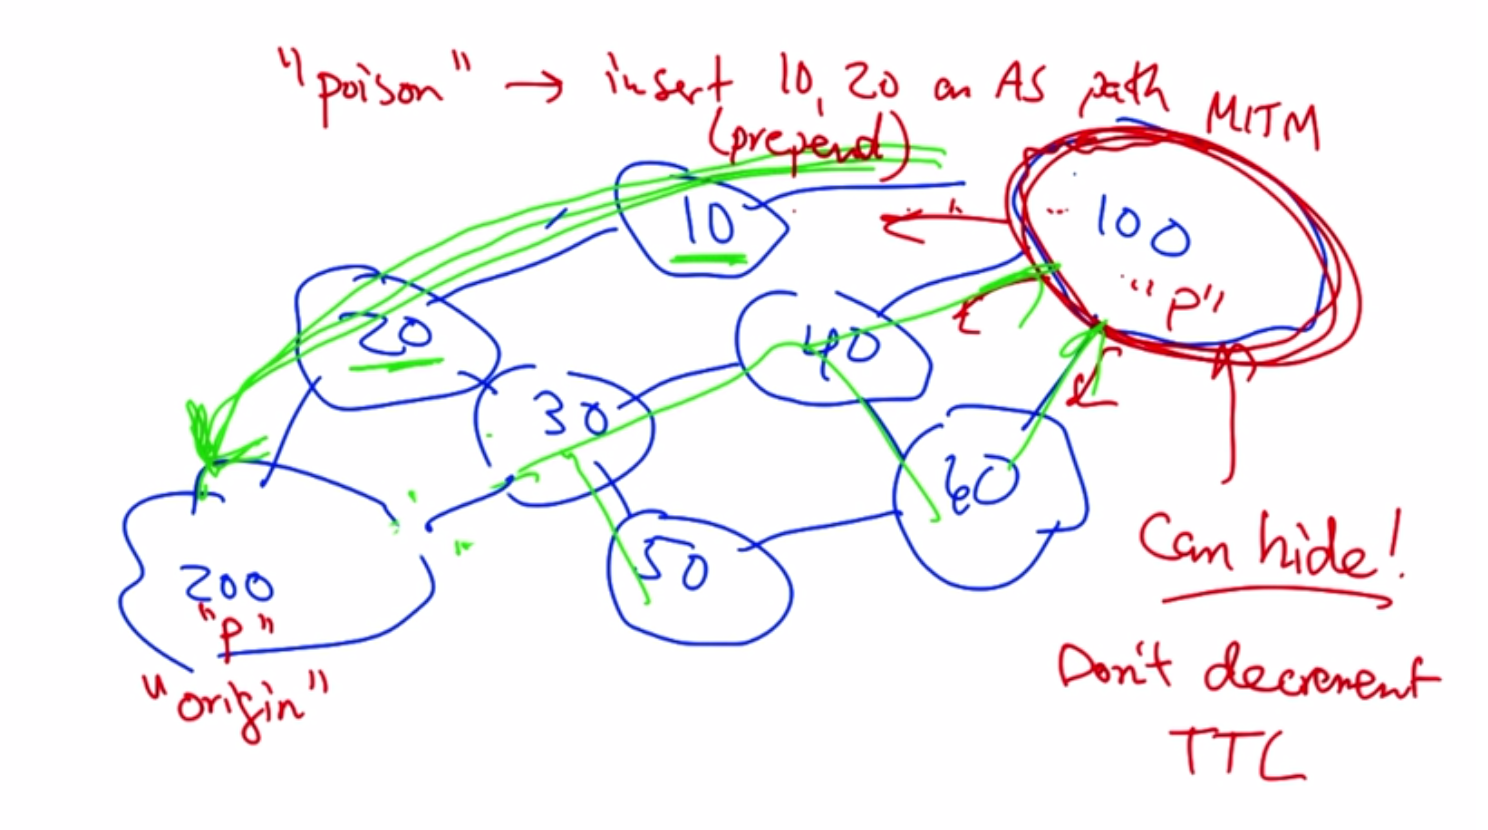 "poison" → insert 10, 20 on AS path
(prepend)
MITM
10
100
"P"
20
40
30
60
50
200
"P"
"origin"
Can hide!
Don't decrement
TTL